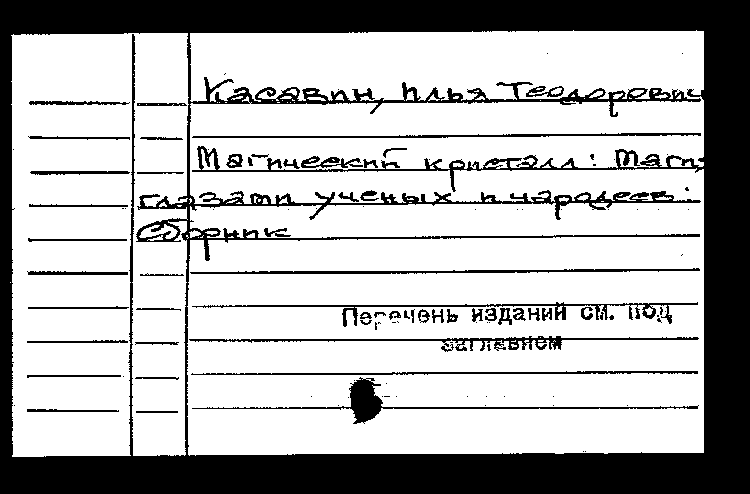 Касавин, Илья Теодорович
Магический кристалл: Магия
глазами ученых и чародеев:
Сборник
Перечень изданий см. под
заглавием